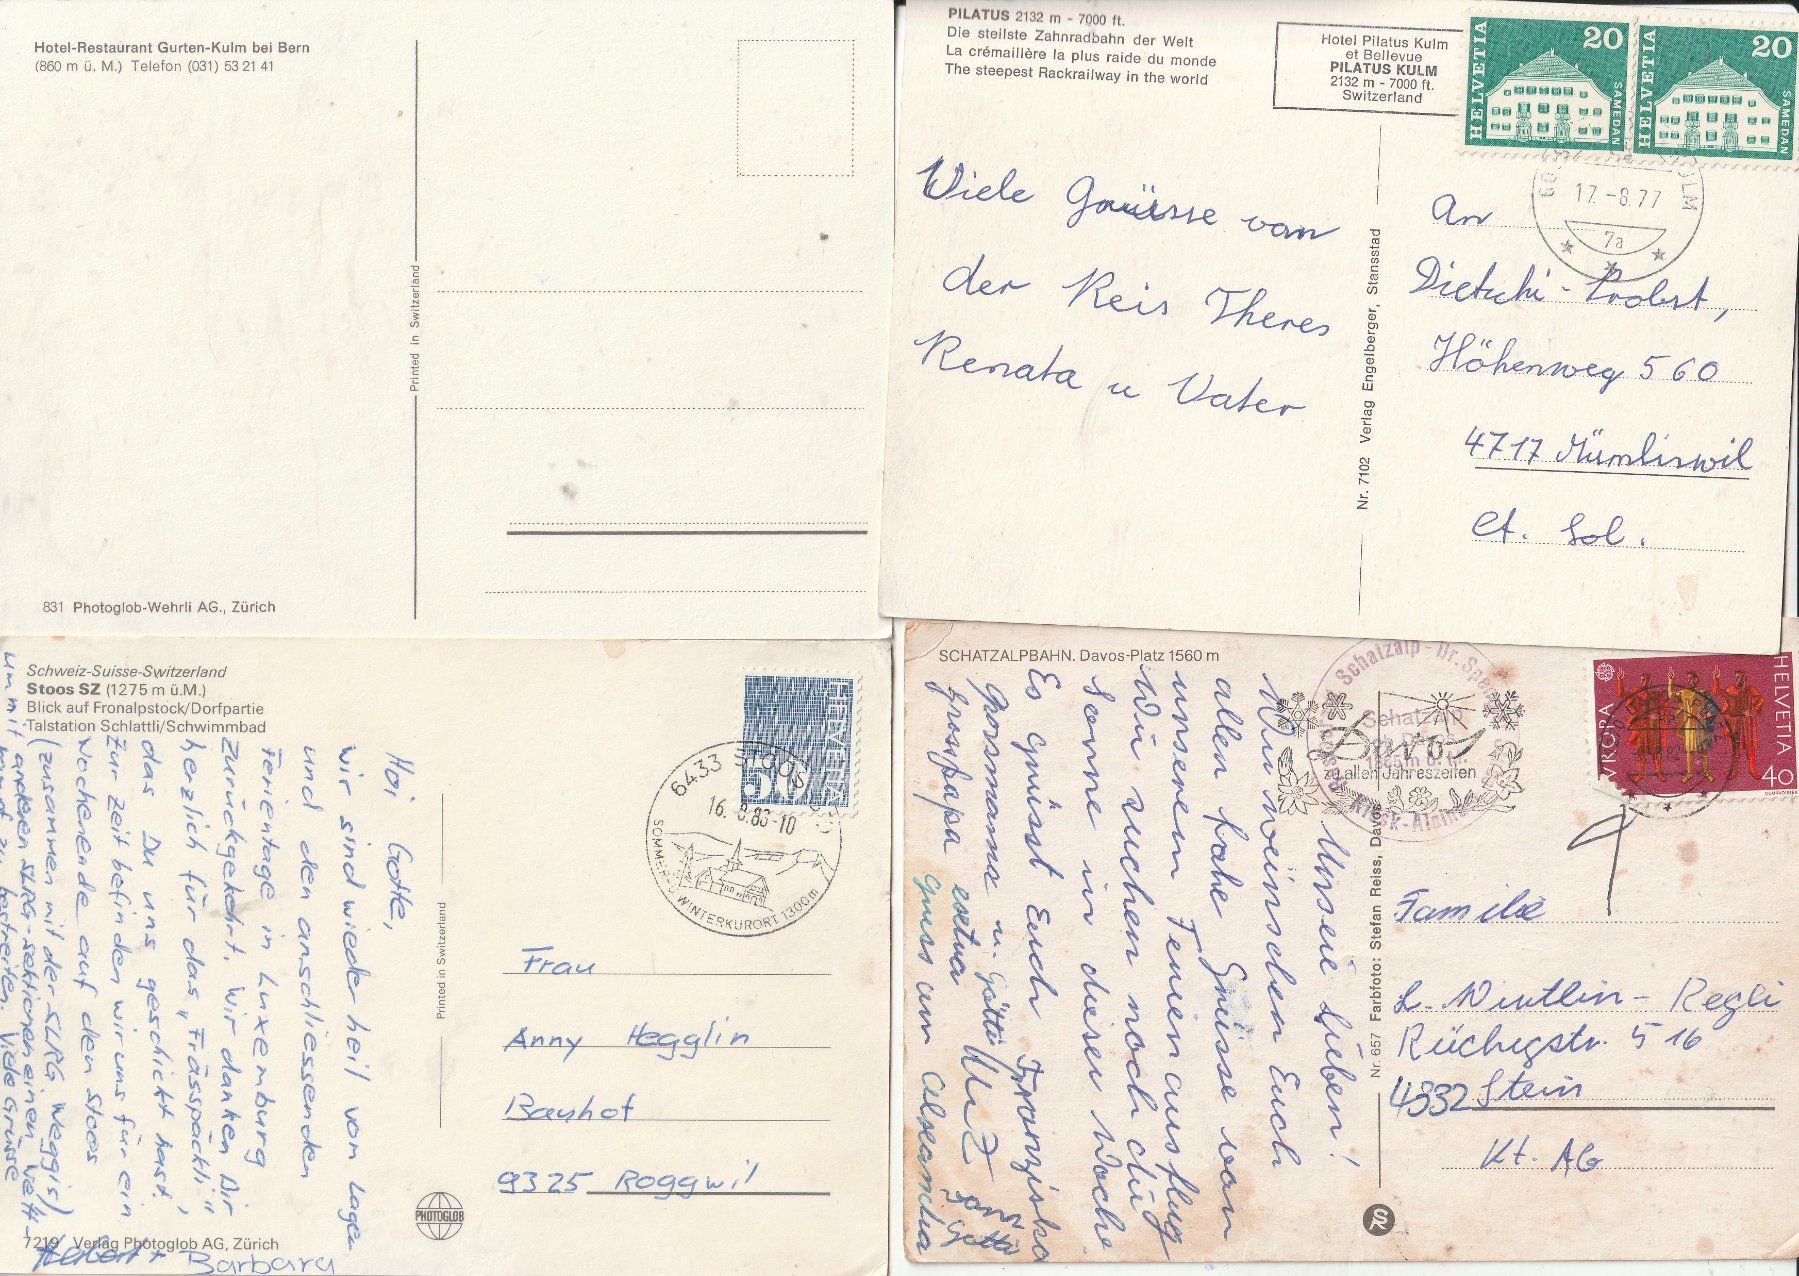 Hotel-Restaurant Gurten-Kulm bei Bern
(860 m ü. M.) Telefon (031) 53 21 41
Printed in Switzerland
831 Photoglob-Wehrli AG., Zürich
PILATUS 2132 m - 7000 ft.
Die steilste Zahnradbahn der Welt
La crémaillère la plus raide du monde
The steepest Rackrailway in the world
Hotel Pilatus Kulm
et Bellevue
PILATUS KULM
2132 m - 7000 ft.
Switzerland
HELVETIA
20
SAMEDAN
HELVETIA
20
SAMEDAN
17.-8.77
7a
Viele Grüsse von
der Reis Theres
Renata u Vater
Nr. 7102 Verlag Engelberger, Stansstad
An
Dietschi-Probst,
Höhenweg 560
4717 Mümliswil
Ct. Sol.
Schweiz-Suisse-Switzerland
Stoos SZ (1275 m ü.M.)
Blick auf Fronalpstock/Dorfpartie
Talstation Schlattli/Schwimmbad
Hoi Gotte,
wir sind wieder heil vom Lager
und den anschliessenden
Ferientage in Luxemburg
zurückgekehrt. Wir danken Dir
herzlich für das "Frässpäckli",
das Du uns geschickt hast.
Zur Zeit befinden wir uns für ein
Wochenende auf den Stoos
(zusammen mit der SLRG Weggis)
um mit anderen SLRG-sektionen einen Wett-
kampf zu bestreiten. Viele Grüsse
+ Barbara
7219 Verlag Photoglob AG, Zürich
PHOTOGLOB
Printed in Switzerland
HELVETIA
50
6433 STOOS
16.8.83-10
SOMMER- U. WINTERKURORT 1300m
Frau
Anny Hegglin
Bauhof
9325 Roggwil
SCHATZALPBAHN. Davos-Platz 1560 m
Schatzalp
Davos
zu allen Jahreszeiten
EUROPA
HELVETIA
40
COURVOISIER
Unsere Lieben!
Wir wünschen Euch
allen frohe Grüsse von
unserem Ferienausflug
Wir suchen noch die
Sonne in dieser Woche
Es grüsst Euch Franziska
Grossmama u. Götti
Grosspapa
Gruss am
Nr. 657 Farbfoto: Stefan Reiss, Davos
SR
Familie
L. Wintlin-Regli
Rüchigstr. 516
4332 Stein
Kt. AG